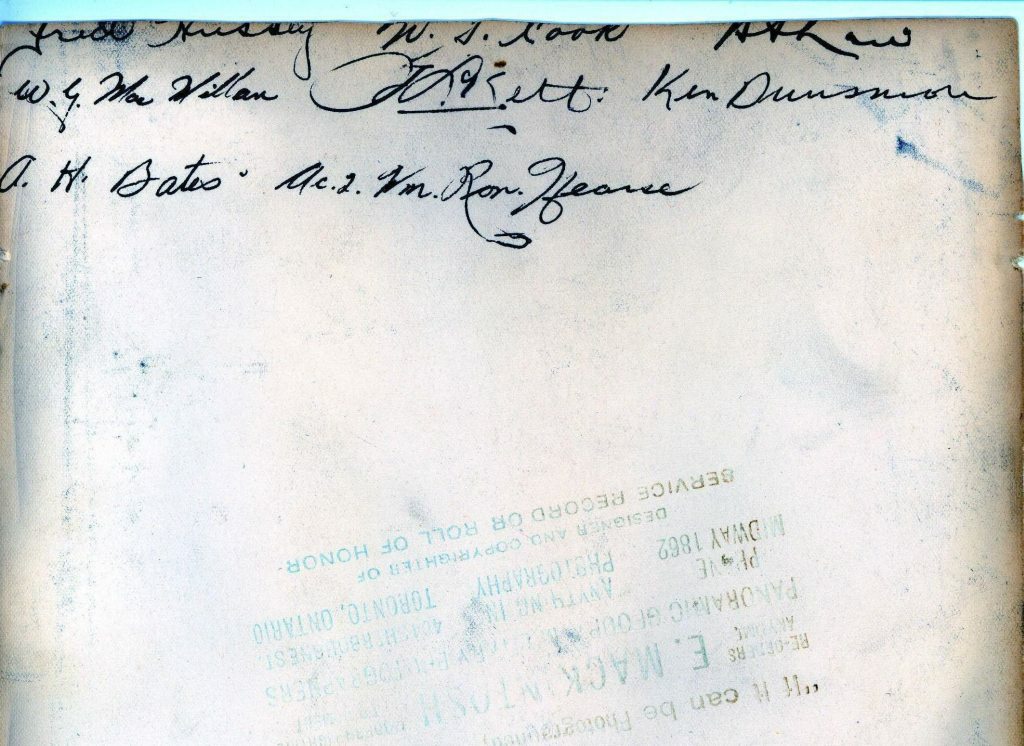 Fred Hussey W. S. Cook
W. G. MacMillan Kett. Ken Dunsmore
A. H. Bates. Ac. 2. Wm. Ron. Hearse
"If it can be Photographed,
RE-ORDERS ANYTIME E. MACKINTOSH
PANORAMIC GROUP & MILITARY PHOTOGRAPHERS
PHONE ANYTHING IN SHERBOURNE ST.
MIDWAY 1862 PHOTOGRAPHY TORONTO, ONTARIO
DESIGNER AND COPYRIGHTER OF
SERVICE RECORD OR ROLL OF HONOR.